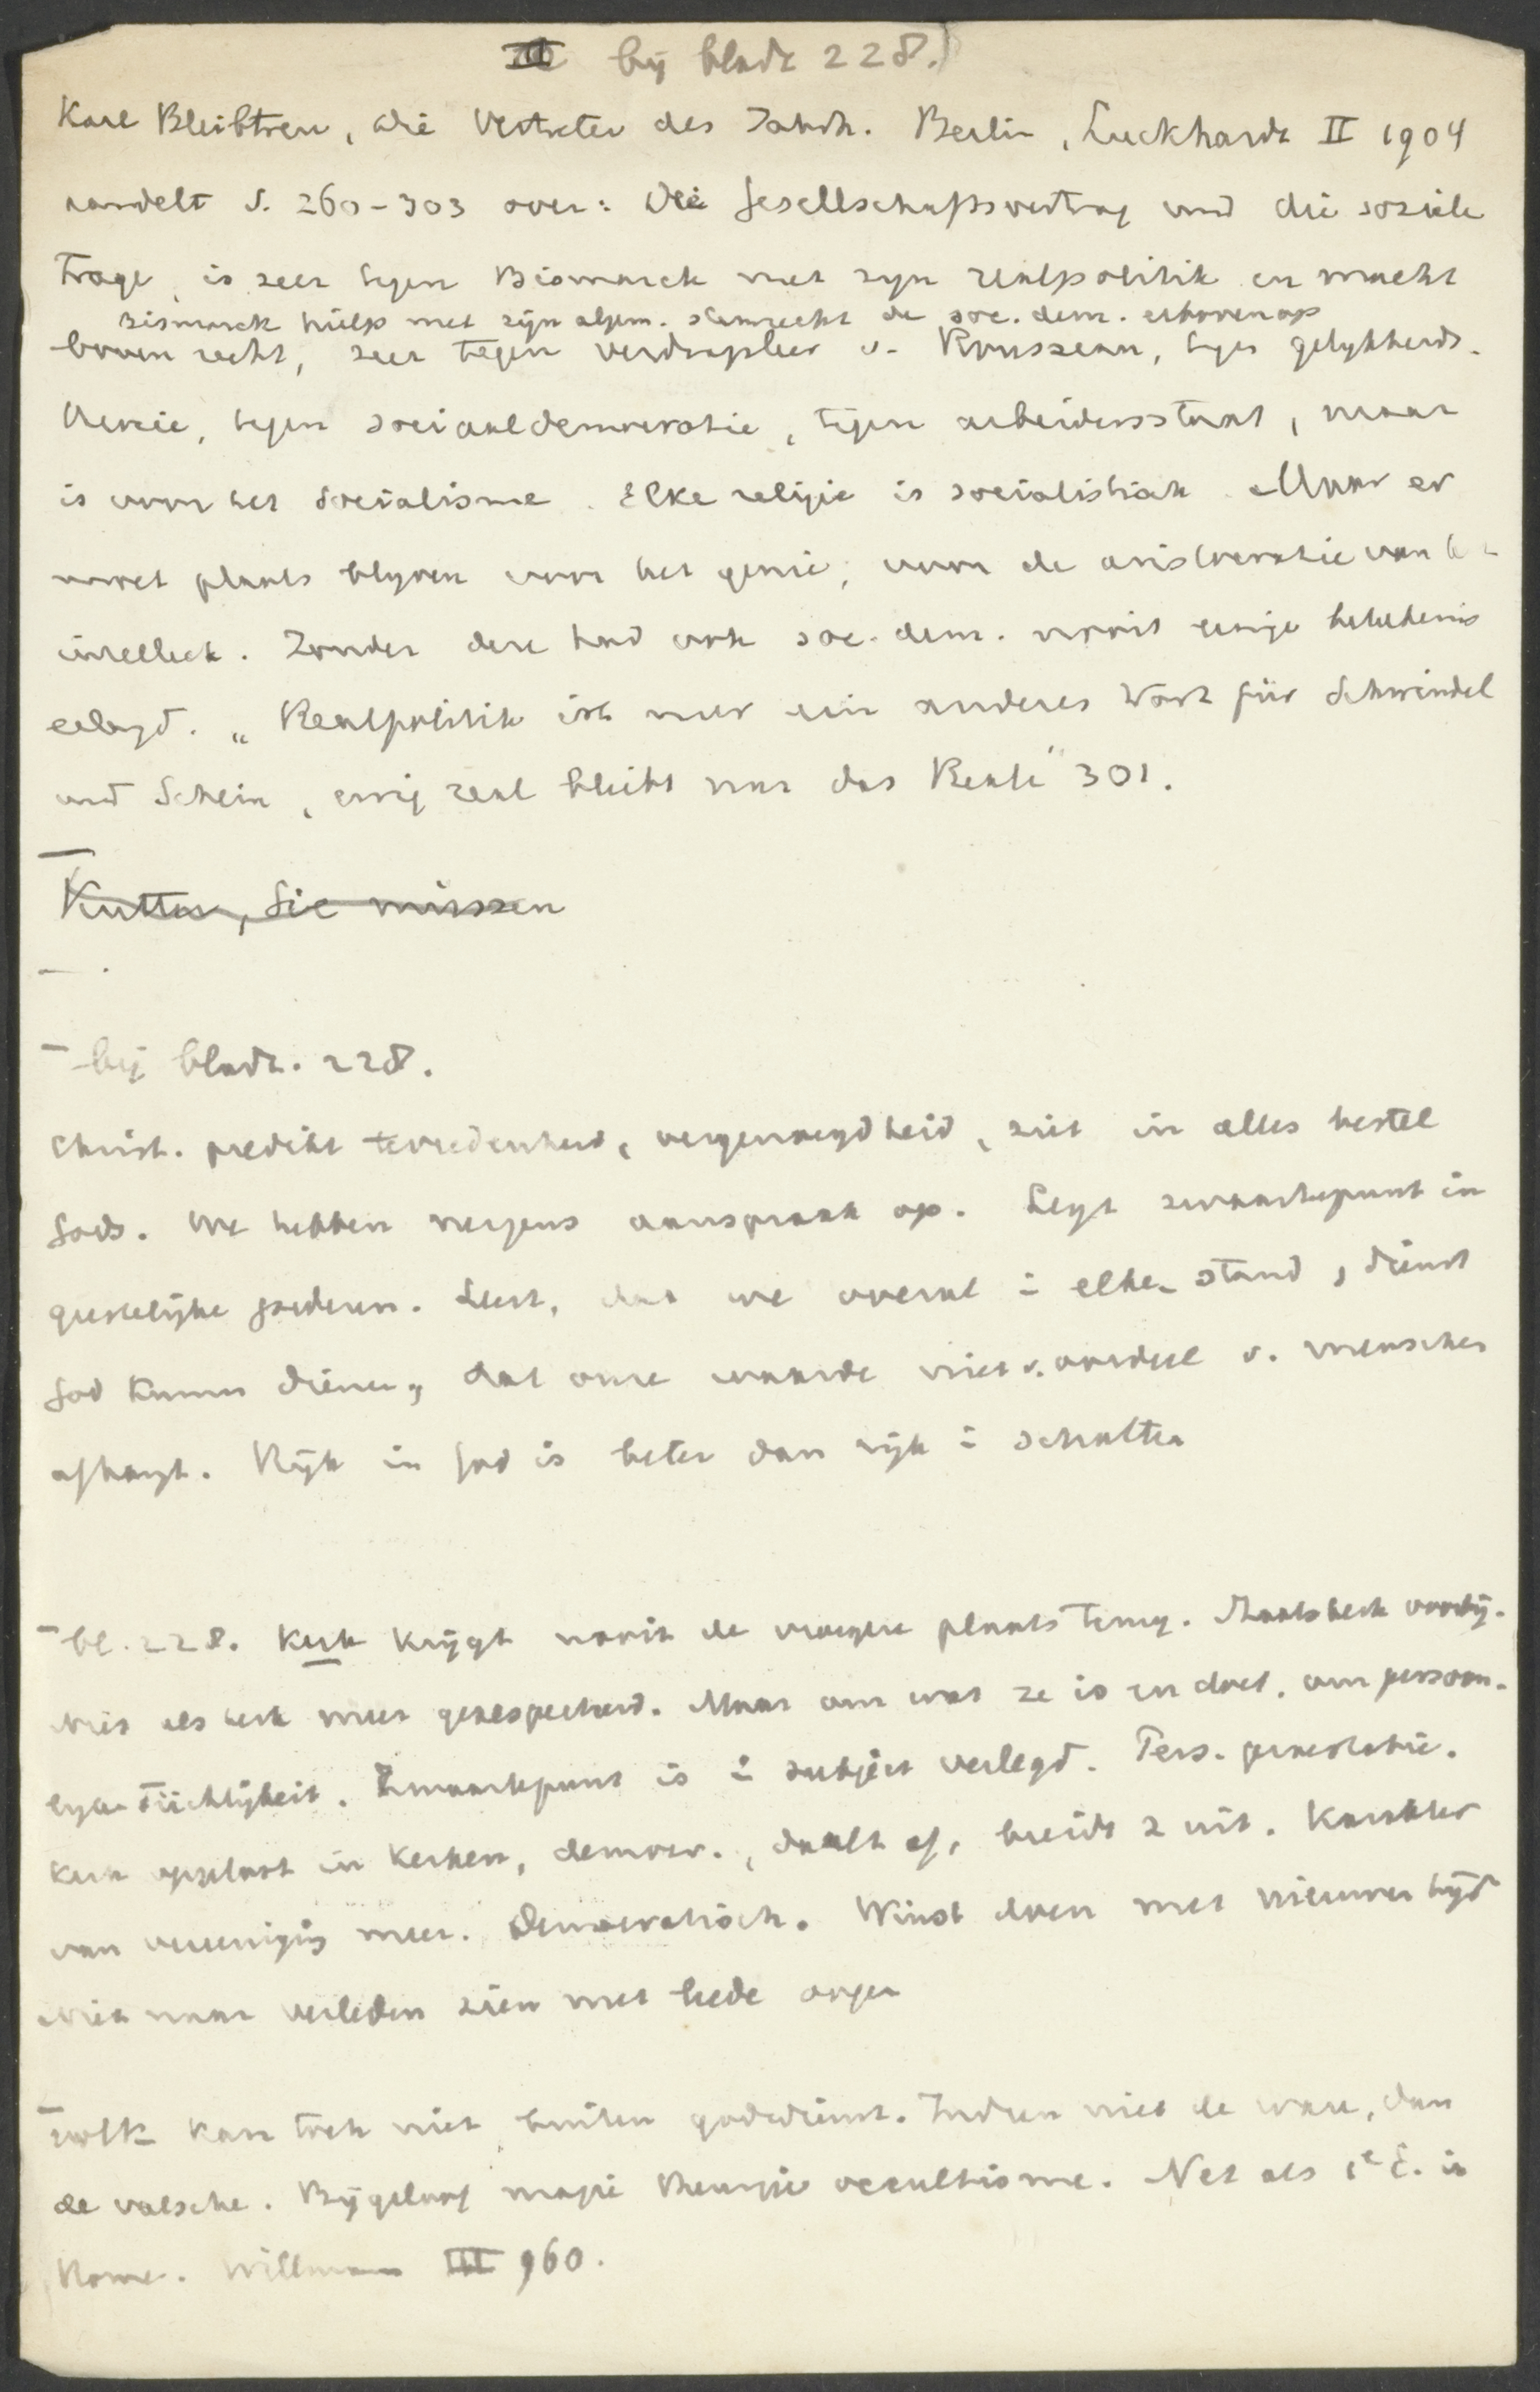 III bij bladz 228.)
Karl Bleibtreu, Die Vertreter des Jahrh. Berlin, Luckhardt II 1904
handelt S. 260-303 over: Der Gesellschaftsvertrag und die soziale
Frage, is zeer tegen Bismarck met zyn realpolitik en macht
Bismarck hielp met zijn algem. stemrecht de soc. dem. erbovenop
boven recht, zeer tegen verdragsleer v. Rousseau, tegen gelykheids-
theorie, tegen sociaaldemocratie, tegen arbeidersstaat, maar
is voor het Socialisme. Elke religie is socialistisch. Maar er
moet plaats blyven voor het genie, voor de aristocratie van het
intellect. Zonder deze had ook soc. dem. nooit eenige beteekenis
erlangd. „Realpolitik ist nur ein anderes Wort für Schwindel
und Schein, ewig real bleibt nur das Reale" 301.
Kutter, Sie müssen
bij bladz. 228.
Christ. predikt tevredenheid, vergenoegdheid, ziet in alles bestel
Gods. We hebben nergens aanspraak op. Legt zwaartepunt in
geestelijke goederen. Leert, dat we overal in elken stand, dienst
God kunnen dienen, dat onze waarde niet v. oordeel v. menschen
afhangt. Rijk in God is beter dan rijk in schatten
bl. 228. Kerk krijgt nooit de vroegere plaats terug. Staatskerk voorbij.
Niet als kerk meer gerespecteerd. Maar om wat ze is en doet, om persoon-
lyke tüchtigkeit. Zwaartepunt is in subject verlegd. Pers. praestatie.
Kerk opgelost in kerken, democr., daalt af, breidt z uit. Karakter
van vereeniging meer. Democratisch. Winst doen met nieuwen tijd
Niet naar verleden zien met leede oogen
Volk kan toch niet buiten godsdienst. Indien niet de ware, dan
de valsche. Bijgeloof magie theurgie occultisme. Net als 1e E. in
Rome. Willmann III 960.